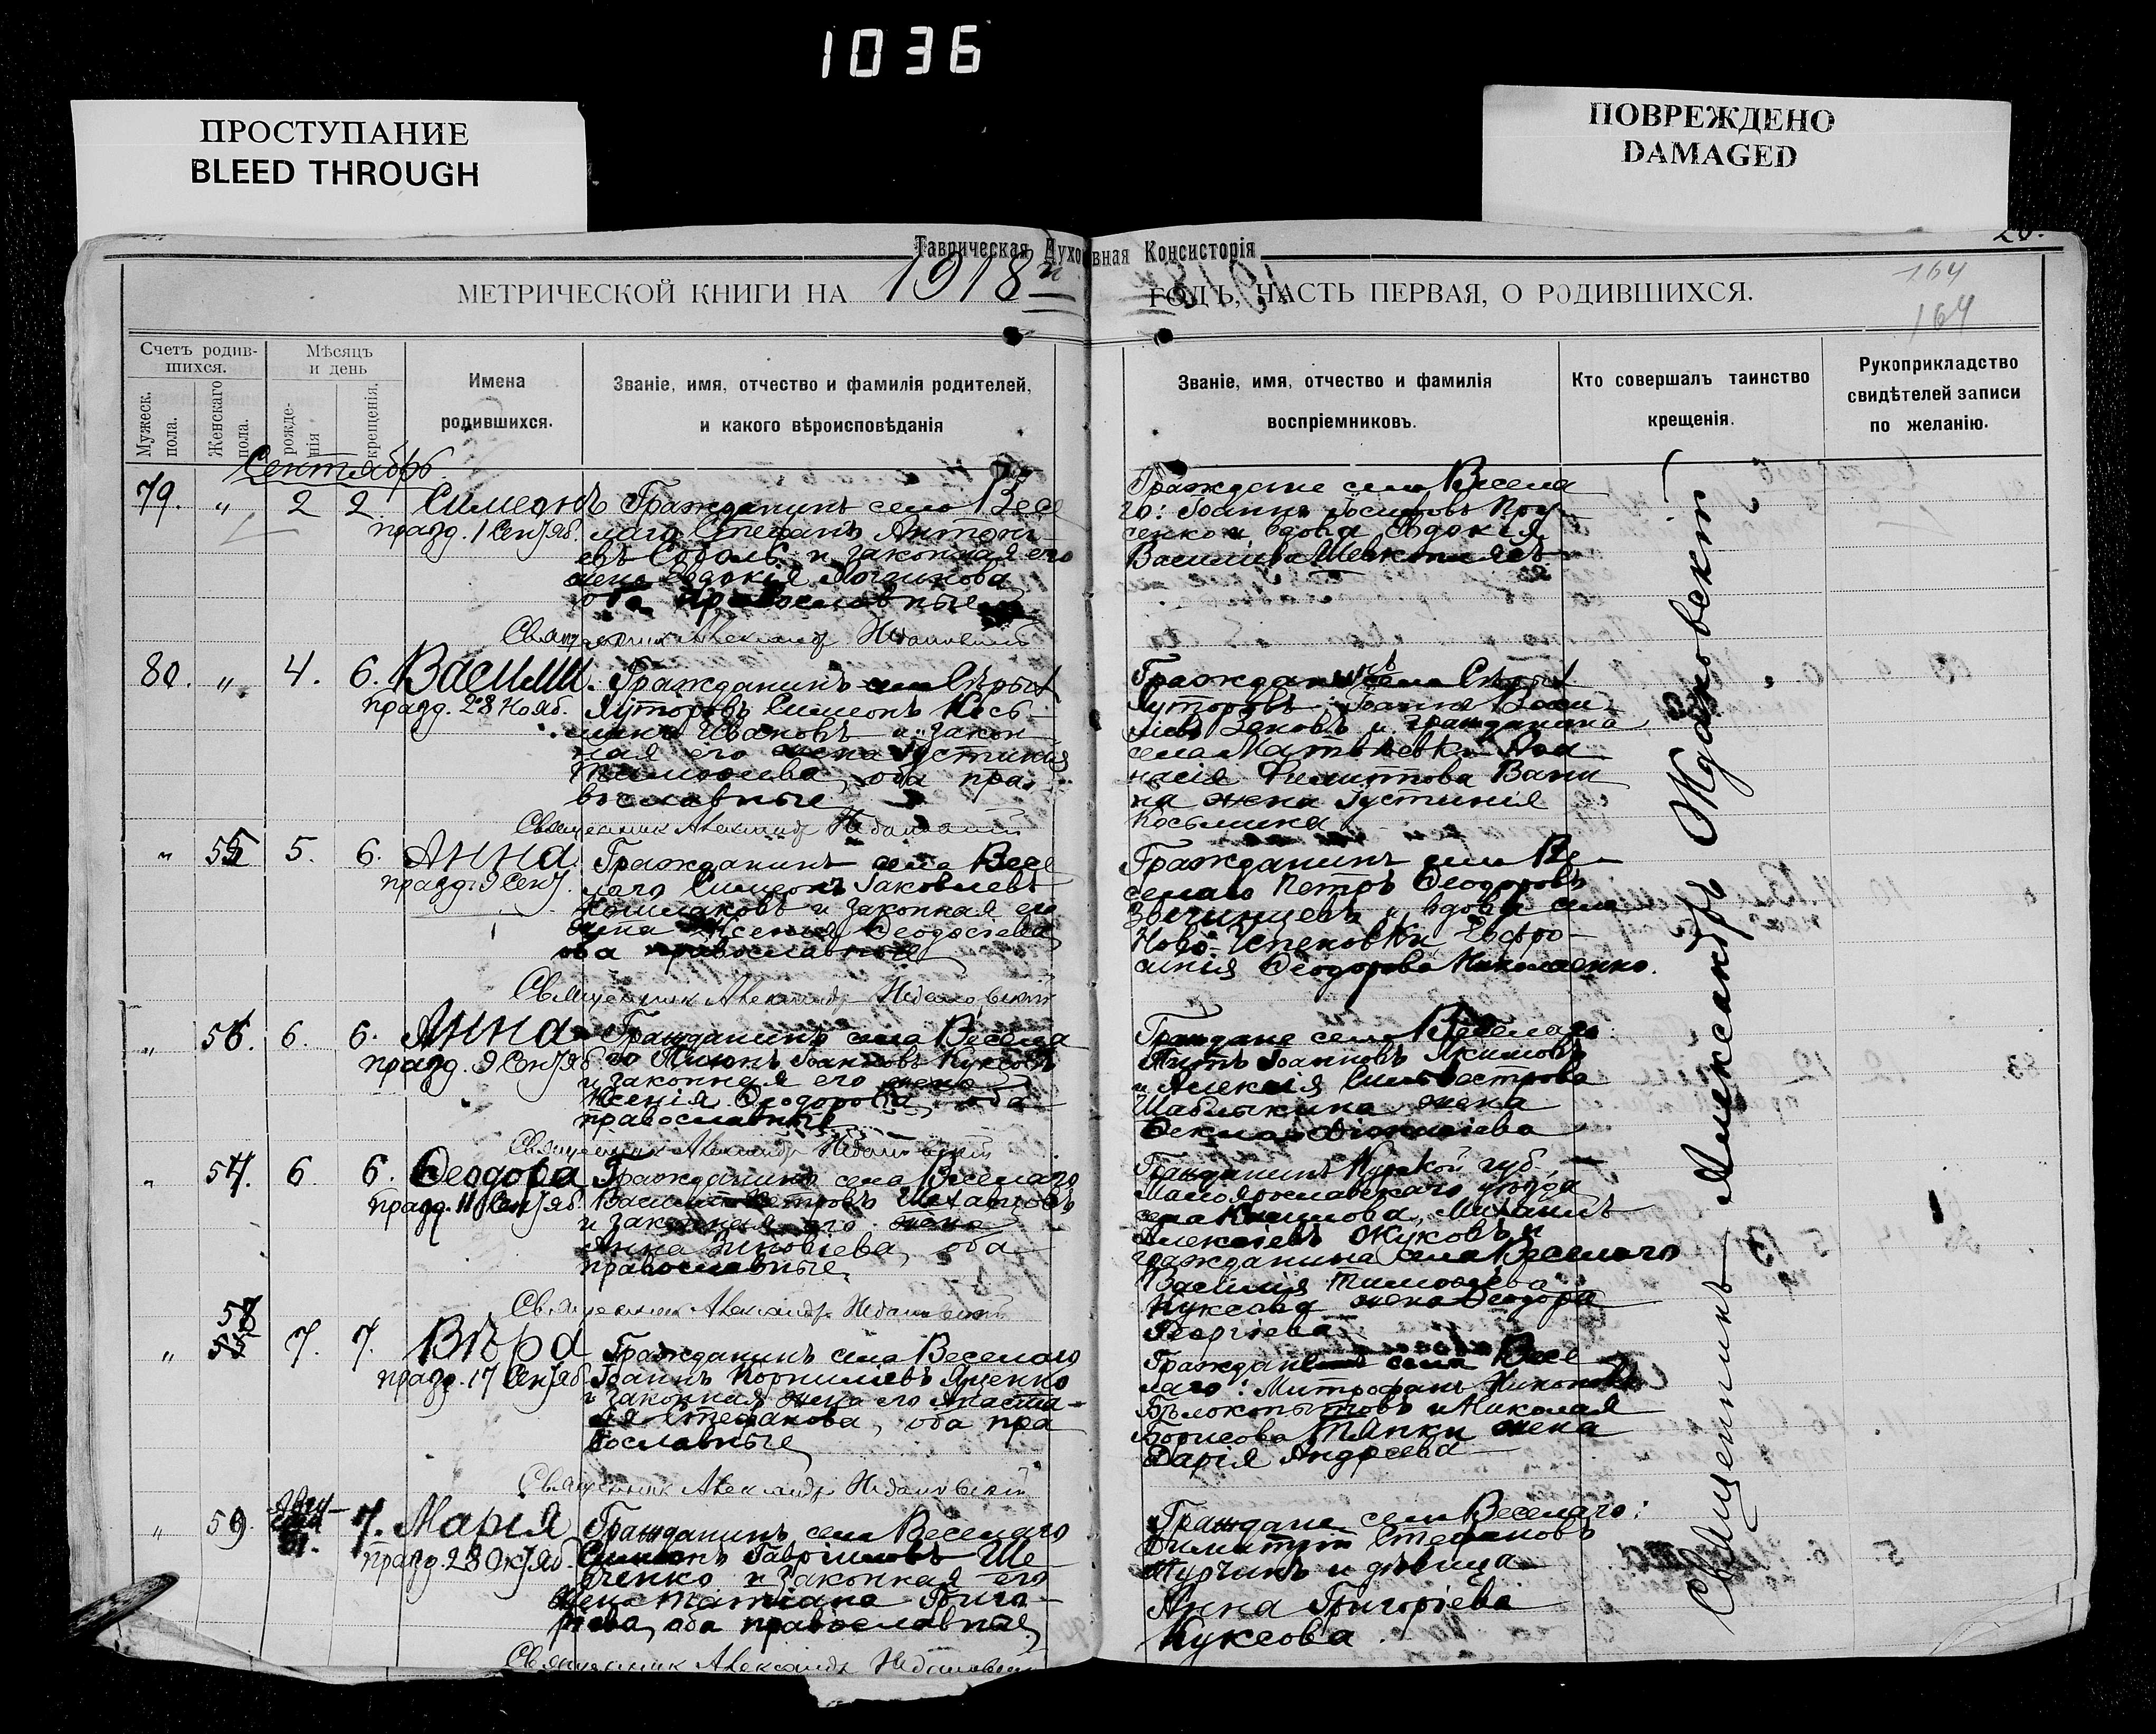 1036
ПРОСТУПАНИЕ
BLEED THROUGH
ПОВРЕЖДЕНО
DAMAGED
Таврическая Духовная Консисторія
МЕТРИЧЕСКОЙ КНИГИ НА 1918 ГОДЪ, ЧАСТЬ ПЕРВАЯ, О РОДИВШИХСЯ.
164
164
Счетъ родив-
шихся.
Мужеск.
пола.
Женскаго
пола.
Мѣсяцъ
и день
рожде-
нія
крещенія.
Имена
родившихся.
Званіе, имя, отчество и фамилія родителей,
и какого вѣроисповѣданія
Званіе, имя, отчество и фамилія
воспріемниковъ.
Кто совершалъ таинство
крещенія.
Рукоприкладство
свидѣтелей записи
по желанію.
Сентябрь
79. " 2 2 Симеонъ
празд. 1 Сентяб.
Гражданинъ села Весе
лаго Стефанъ Антонь
евъ Соболь и законная его
жена Евдокія Логинова
оба православные
Священник Александр Ждановский
Граждане села Весела
го: Іоаннъ Іосифовъ
и вдова Евдокія
Василиева
80. " 4. 6. Василій.
празд. 28 Нояб.
Гражданинъ села Сѣрых
Хуторовъ Симеонъ Кось
минъ Ивановъ и закон
ная его жена Іустинія
Тимофеева, оба пра
вославные
Священник Александр Ждановский
села Сѣрых
Хуторовъ Іоаннъ
Зеновъ и гражданина
села Матвѣевки
насія Филиппова
на жена Іустинія
Косьмина
" 55 5. 6. Анна
празд. 9 Сент.
Гражданинъ села Весе
лаго Симеонъ Іаковлевъ
и законная его
жена Ксенія Ѳеодосіева
оба православные
Священник Александр Ждановский
Гражданинъ села Ве-
селаго Петръ Ѳеодоровъ
и вдова села
Ново-Успеновки Евфро-
синія Ѳеодорова Николаенко.
" 56. 6. 6. Анна
празд. 9 Сентяб
Гражданинъ села Весела
го Іоанновъ Куксовъ
и законная его жена
Ксенія Ѳеодорова, оба
православные
Священник Александр Ждановский
Граждане села Веселаго:
Титъ Іоанновъ Якимовъ
и Алексія Сильвестрова
Шаблыкина жена
Ѳекла
" 57. 6 6. Ѳеодора
празд. 11 Сентяб.
Гражданинъ села Веселаго
Василій Петровъ
и законная его жена
Анна Зиновіева, оба
православные.
Священник Александр Ждановский
Гражданинъ Курской губ.
Малоярославскаго уѣзда
села Михаилъ
Алексѣевъ Жуковъ и
гражданина села Веселаго
Василія Тимоѳеева
Куксова жена Ѳеодора
Георгіева
58
" 7. 7. Вѣра
празд. 17 Сентяб.
Гражданинъ села Веселаго
Іоаннъ Корниліевъ Яценко
и законная жена его Анаста-
сія Стефанова, оба пра
вославные
Священник Александр Ждановский
Граждане села Весе
лаго: Митрофанъ Никоновъ
Бѣлокопытовъ и Николая
Борисова Тяпки жена
Дарія Андреева
" 59. 7. Марія
празд. 28 Октяб.
Гражданинъ села Веселаго
Симеонъ Гавріиловъ Ше
вченко и законная его
жена Татіана Григо-
рьева, оба православные
Священник Александр Ждановский
Граждане села Веселаго:
Димитрій Стефановъ
Турчинъ и дѣвица
Анна Григоріева
Куксова.
Священникъ Александръ Ждановскій